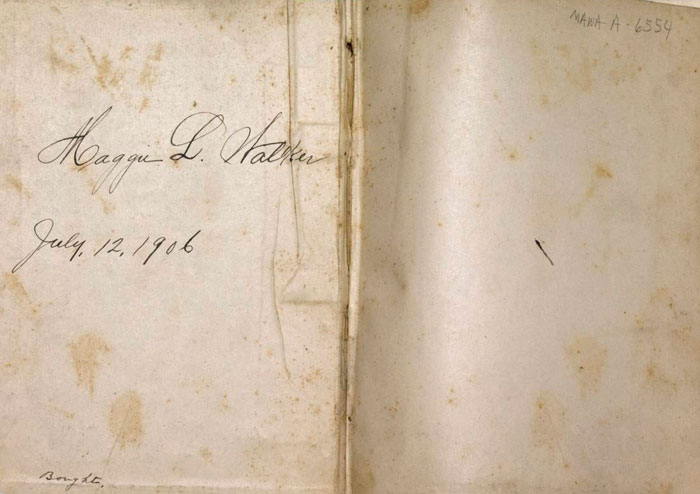 Maggie L. Walker
July, 12, 1906
Bought.
MAWA A-6554